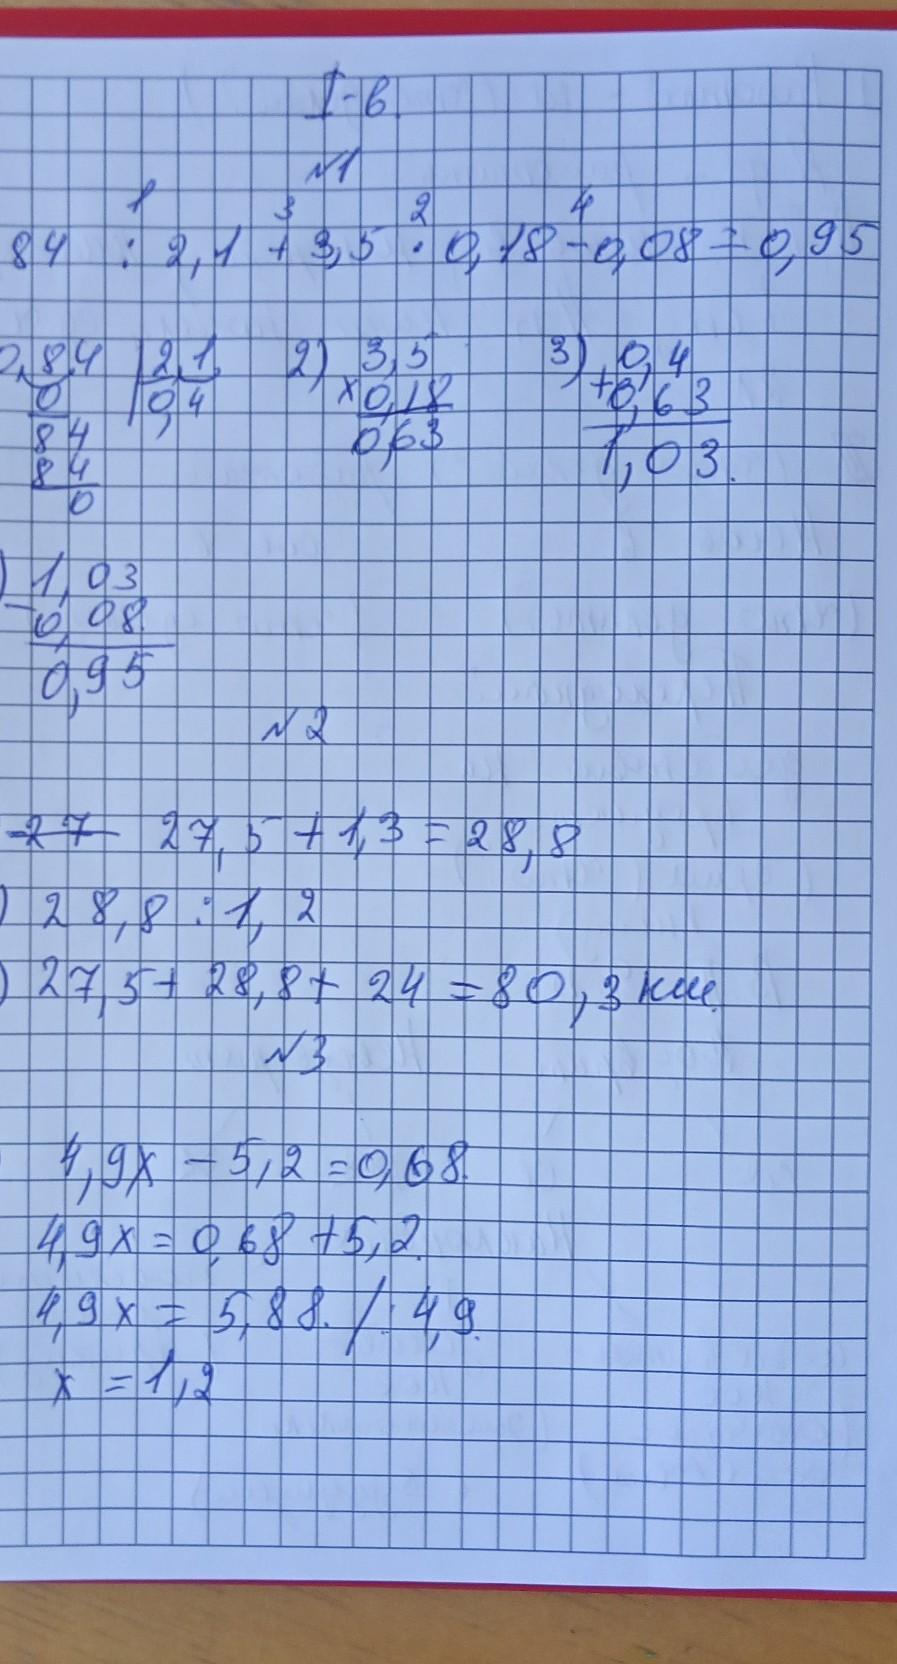 I-в.
№1
1 3 2 4
84 : 2,1 + 3,5 · 0,18 - 0,08 = 0,95
0,8,4 | 2,1, 2) 3,5 3) 0,4
0 0,4 × 0,18 + 0,63
84 0,63 1,03.
84
0
) 1,03
- 0,08
0,95
№2
27 27,5 + 1,3 = 28,8
) 28,8 : 1,2
) 27,5 + 28,8 + 24 = 80,3 км.
№3
4,9x - 5,2 = 0,68.
4,9x = 0,68 + 5,2.
4,9x = 5,88. / : 4,9.
x = 1,2